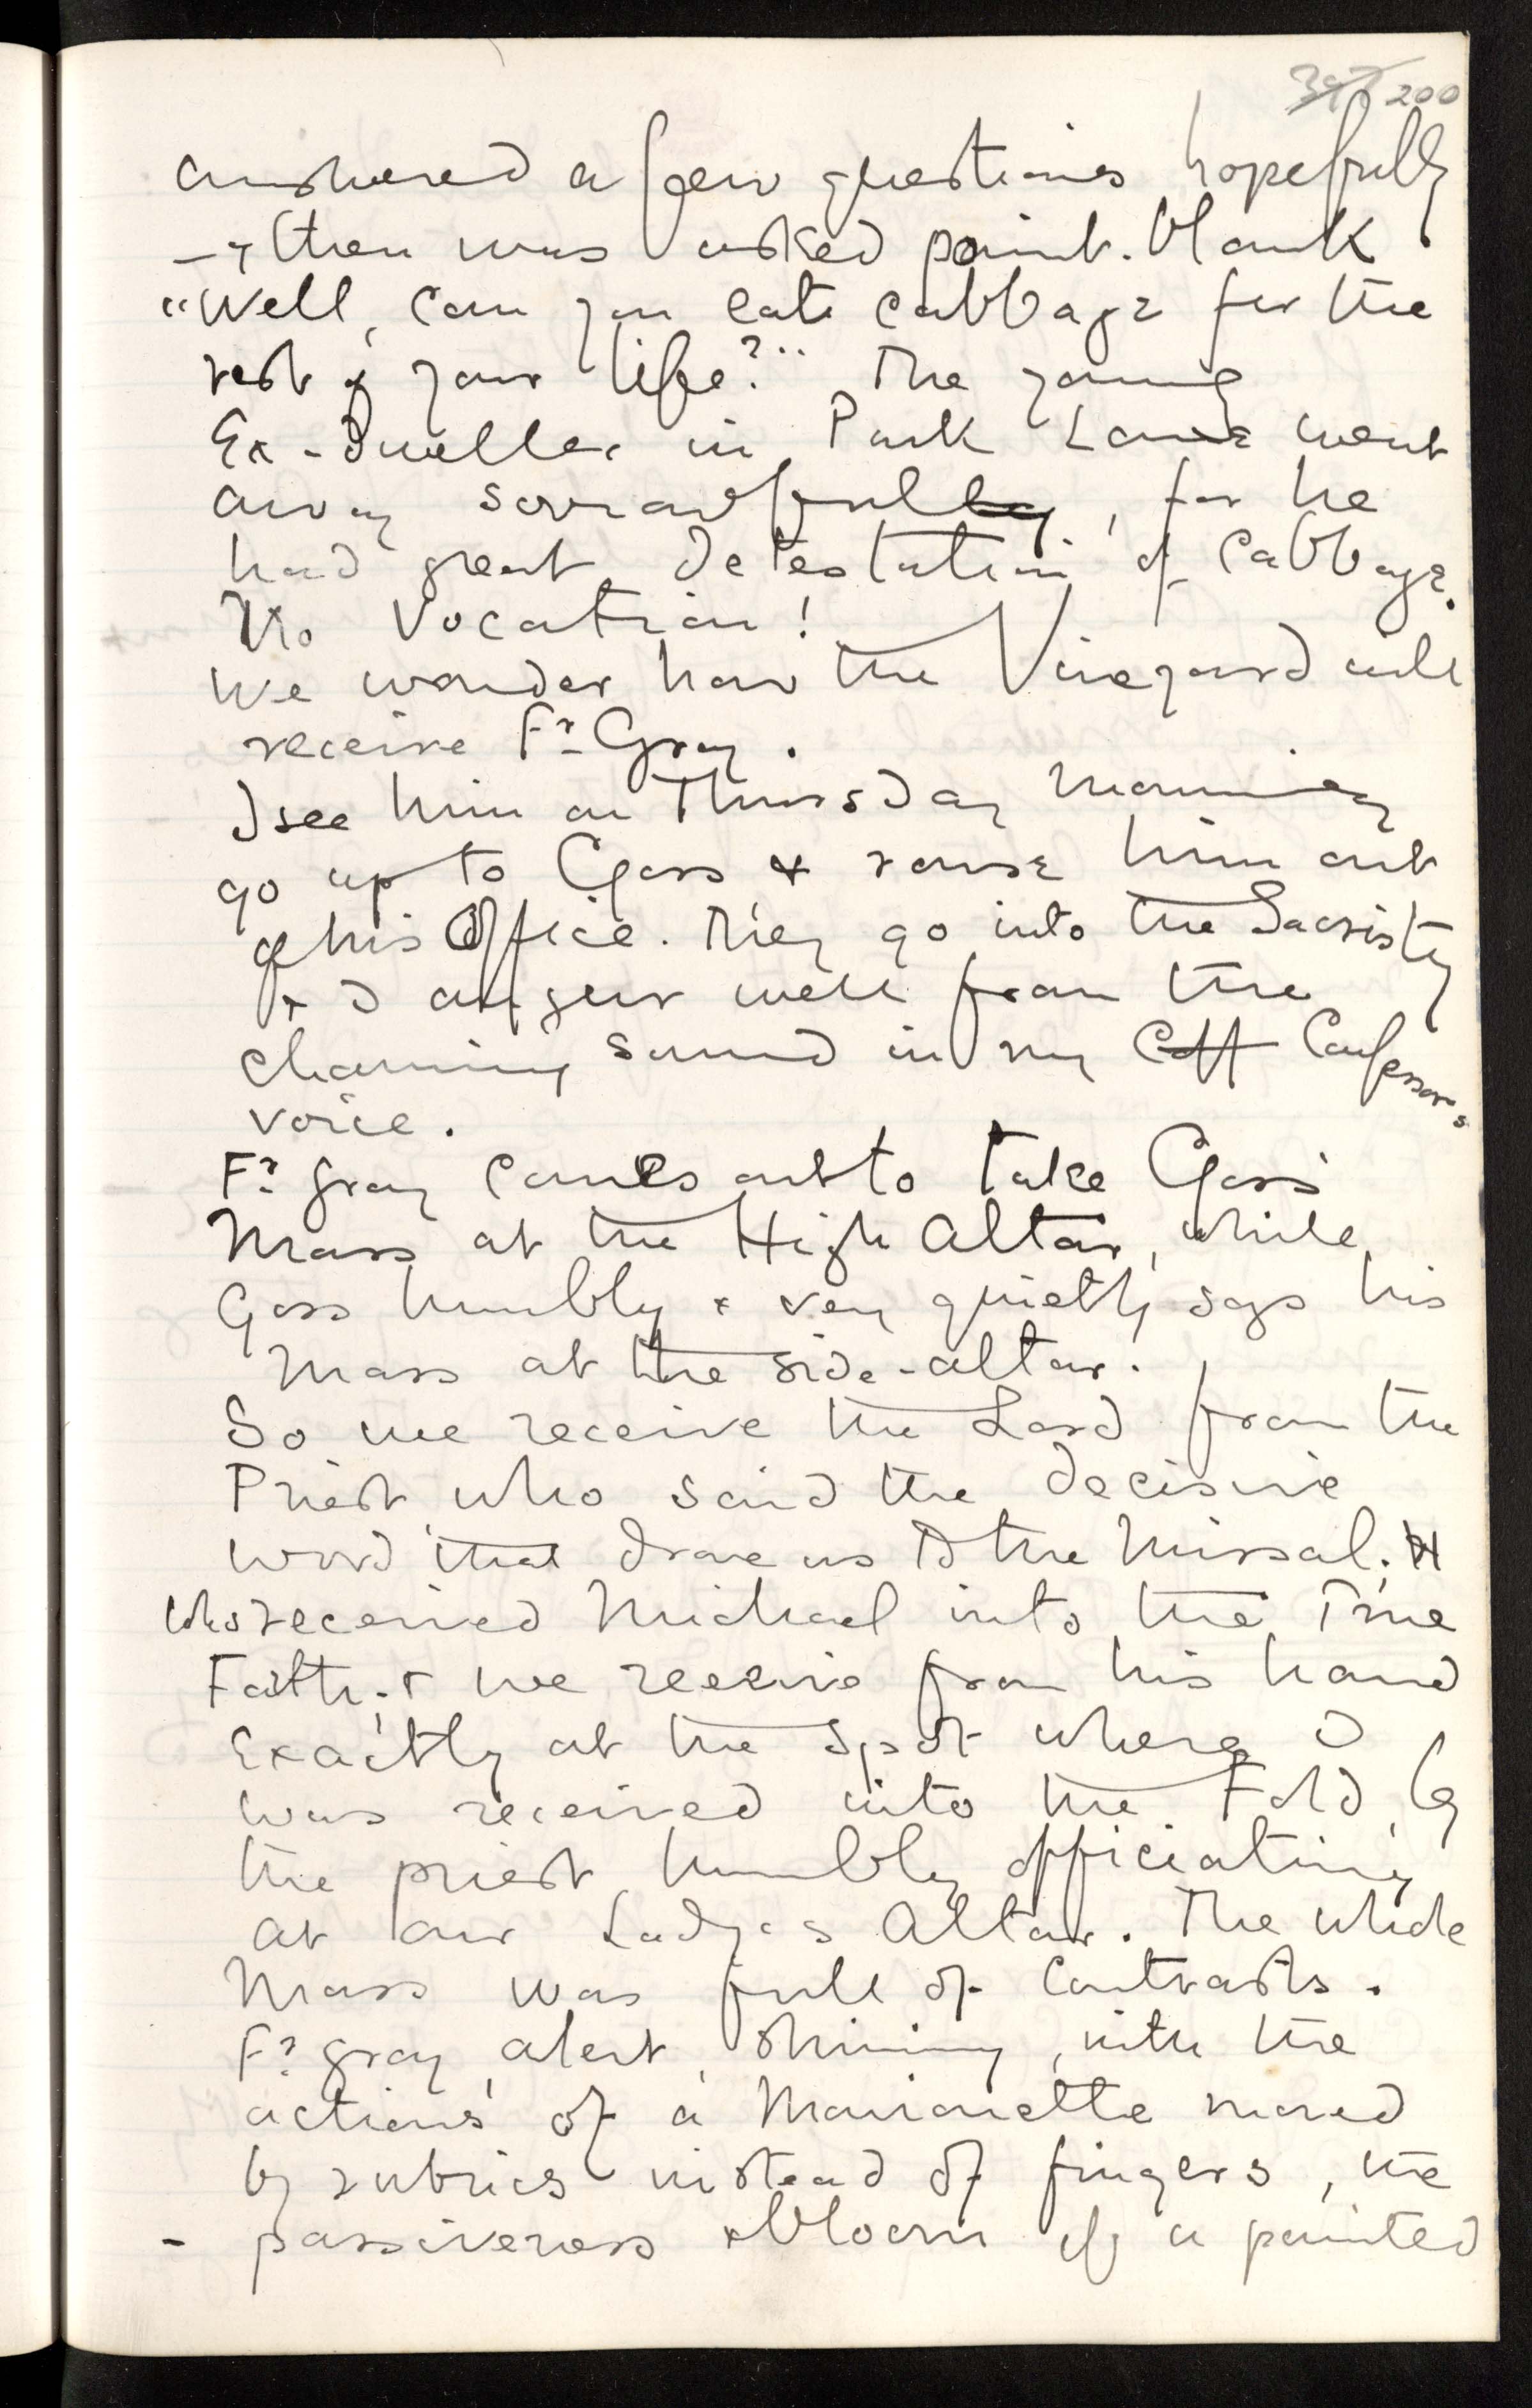 397 200
answered a few questions hopefully
— & then was asked point-blank
"Well, can you eat cabbage for the
rest of your life?" The young
Ex-dweller in Park Lane went
away sorrowfully, for he
had great detestation of cabbage.
No Vocation!
We wonder how the Vineyard will
receive Fr Gray.
I see him on Thursday morning
go up to Goss & rouse him out
of his Office. They go into the Sacristy
& I augur well from the
charming sound in my Coff Confessor's
voice.
Fr Gray comes out to take Goss'
Mass at the High Altar, while
Goss humbly & very quietly says his
Mass at the side-altar.
So we receive the Lord from the
Priest who said the decisive
word that drove us to the Missal; H
who received Michael into the True
Faith; & we receive from his hand
exactly at the spot where I
was received into the Fold by
the priest humbly officiating
at our Ladye's Altar. The whole
Mass was full of Contrasts.
Fr Gray, alert, shining, with the
actions of a Marionette moved
by rubrics instead of fingers, the
- passiveness & bloom of a painted